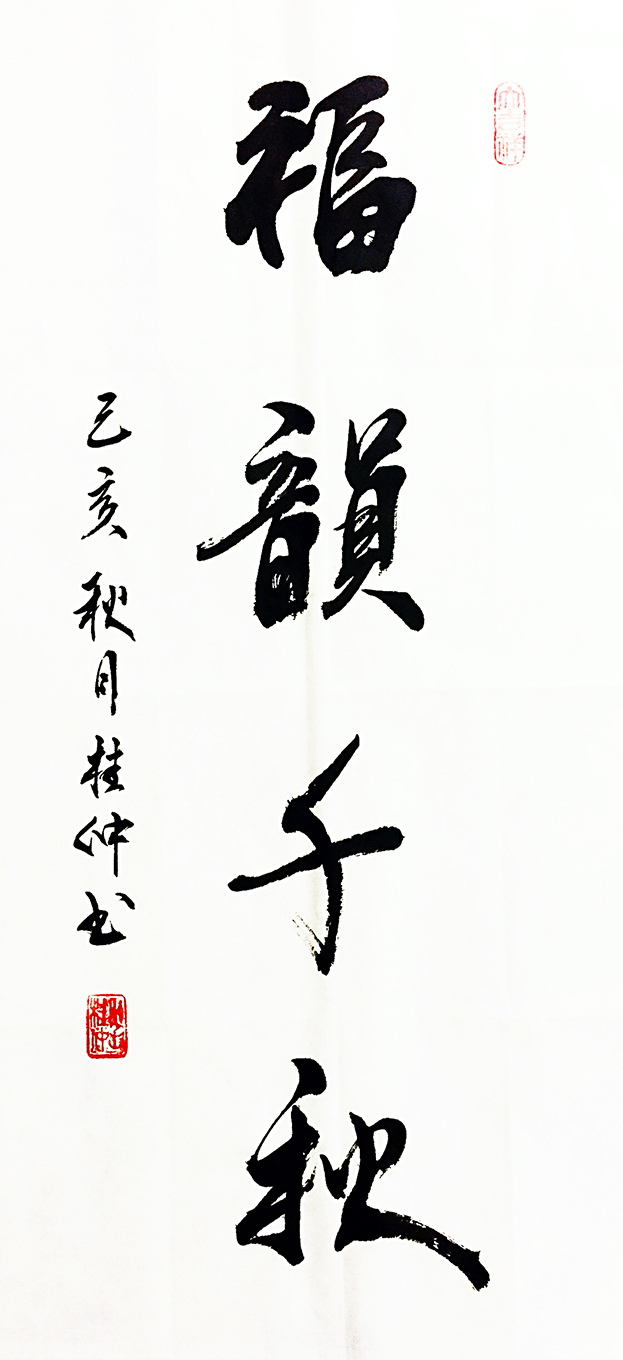 福韻千秋
己亥秋月桂仲书